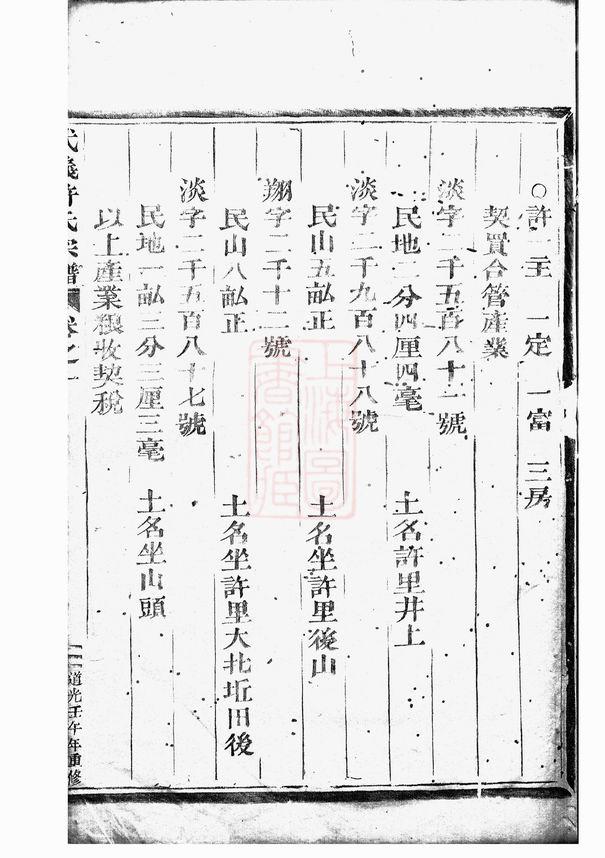 ○許一主 一定 一富 三房
契買合管產業
淡字二千五百八十一號
民地二分四厘四毫 土名許里井上
淡字二千九百八十八號
民山五畝正 土名坐許里後山
翔字二千十二號
民山八畝正 土名坐許里大坵田後
淡字二千五百八十七號
民地一畝三分三厘三毫 土名坐山頭
以上產業糧收契稅
武義許氏宗譜 卷之一
道光壬午年重修
上海圖書館藏